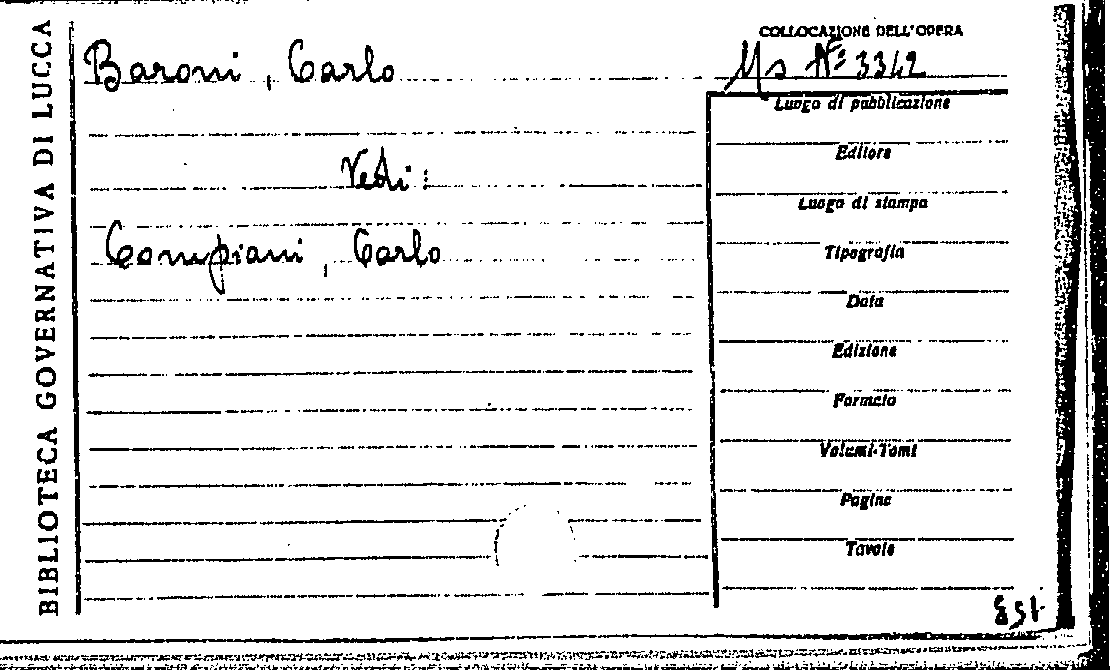 BIBLIOTECA GOVERNATIVA DI LUCCA
COLLOCAZIONE DELL'OPERA
Baroni, Carlo
Ms Nº 3342
Luogo di pubblicazione
Vedi:
Editore
Luogo di stampa
Compiani, Carlo
Tipografia
Data
Edizione
Formato
Volumi-Tomi
Pagine
Tavole